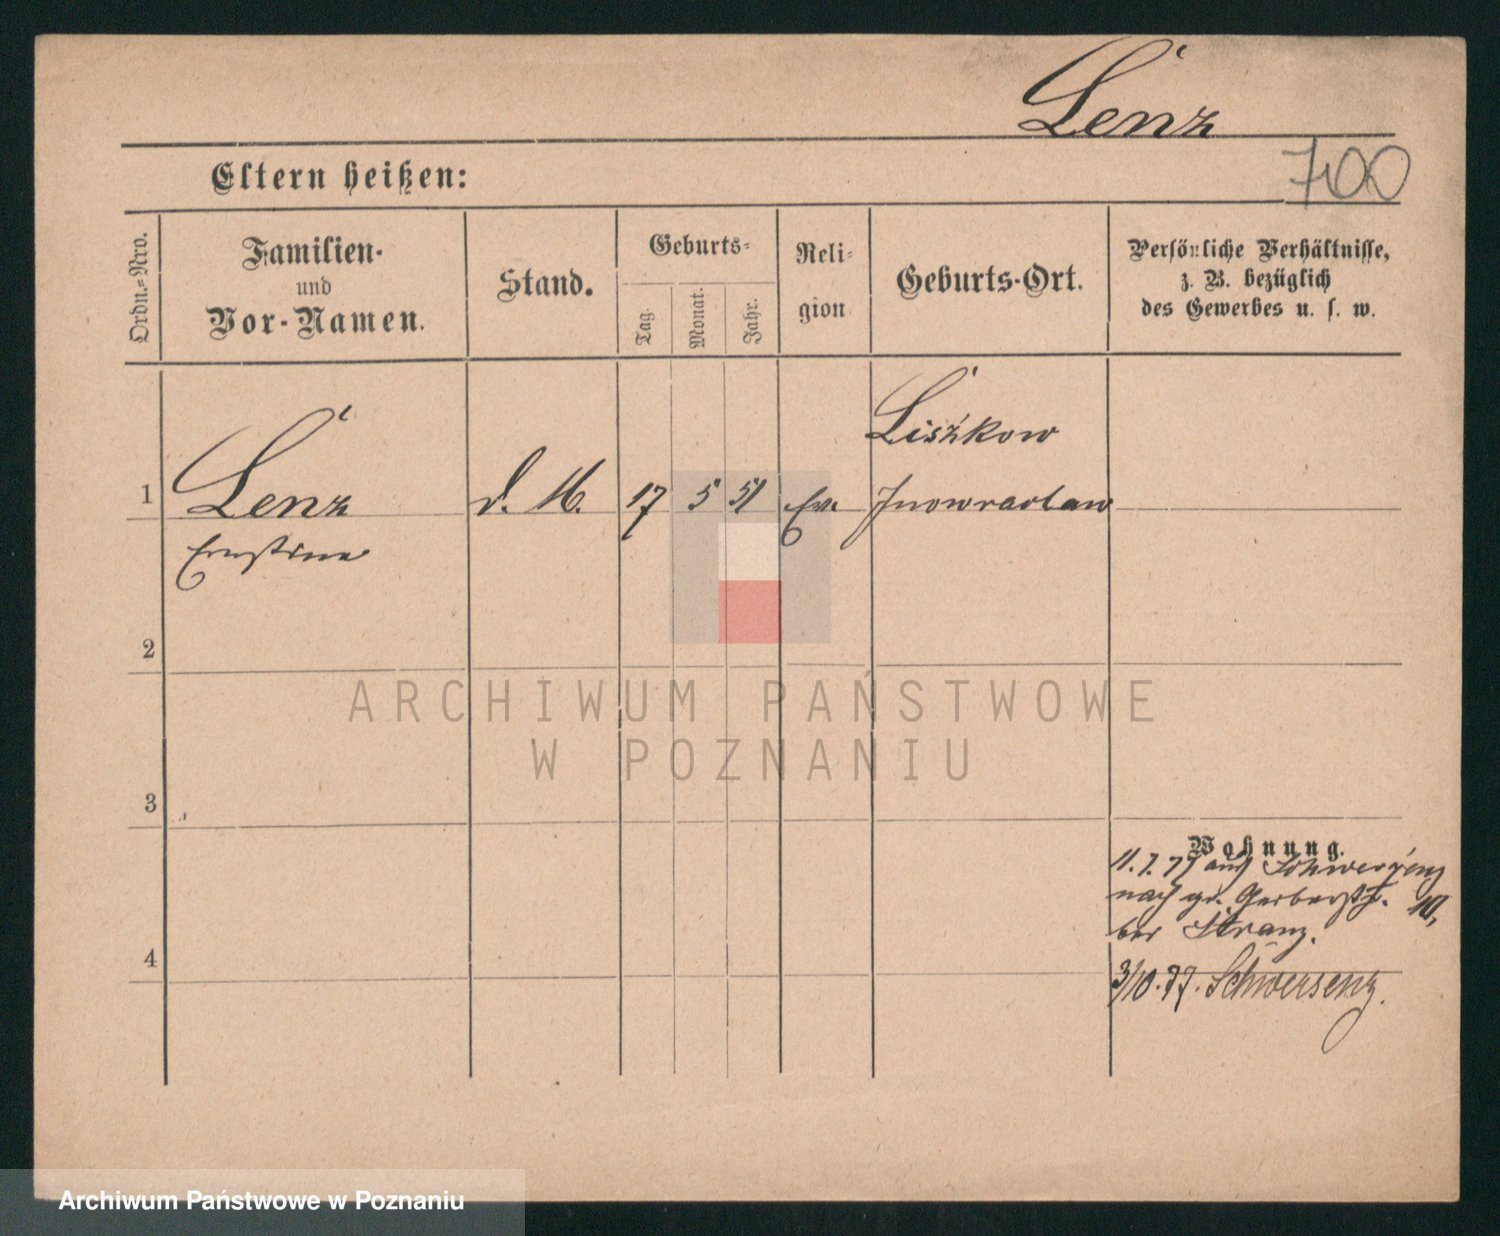 Lenz
700
Eltern heißen:
Ordn.-Nro.
Familien-
und
Vor-Namen.
Stand.
Geburts-
Tag.
Monat.
Jahr.
Reli-
gion
Geburts-Ort.
Persönliche Verhältnisse,
z. B. bezüglich
des Gewerbes u. s. w.
Liszkow
1 Lenz d. M. 17 5 51 Ev. Inowraclaw
Ernstine
2
ARCHIWUM PAŃSTWOWE
W POZNANIU
3
Wohnung.
11.7.77 aus Schwersenz
nach gr. Gerberstr. 40,
bei Kranz.
4
3/10.77. Schwersenz.
Archiwum Państwowe w Poznaniu